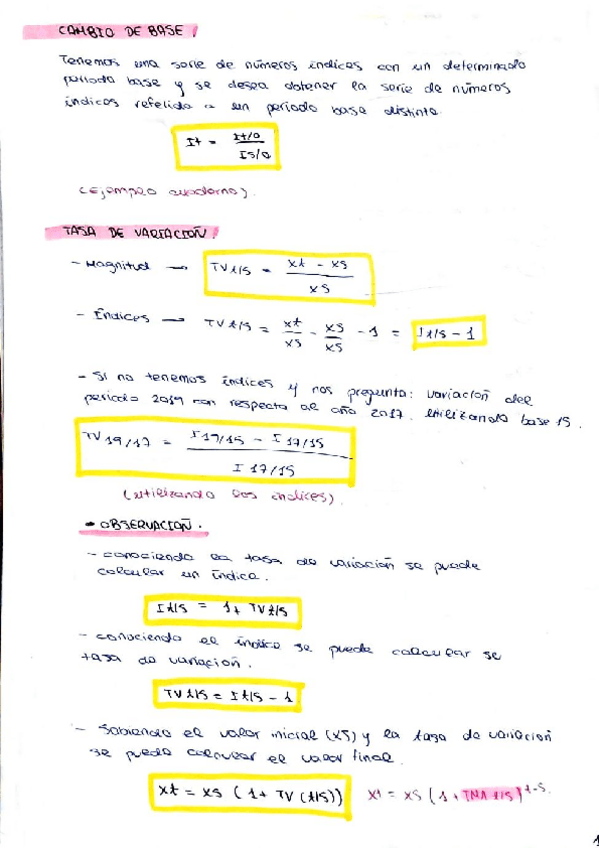 CAMBIO DE BASE.
Tenemos una serie de números índices con un determinado
periodo base y se desea obtener la serie de números
índices refelida a un periodo base distinto.
It = It/0 / Is/0
(Ejemplo cuaderno).
TASA DE VARIACIOÑ.
- Magnitud → TV t/s = xt - xs / xs
- Índices → TV t/s = xt/xs - xs/xs - 1 = It/s - 1
- Si no tenemos índices y nos pregunta: variacioñ del
periodo 2019 con respecto al año 2017. Utilizando base 15.
TV 19/17 = I 19/15 - I 17/15 / I 17/15
(utilizando los índices).
• OBSERVACIOÑ.
- conociendo la tasa de variacioñ se puede
calcular un índice.
It/s = 1 + TV t/s
- conociendo el índice se puede calcular se
tasa de variacioñ.
TV t/s = It/s - 1
- Sabiendo el valor inicial (xs) y la tasa de variacioñ
se puede calcular el valor final.
xt = xs (1 + TV (t/s)) xt = xs (1 + TMA t/s)^t-s
1